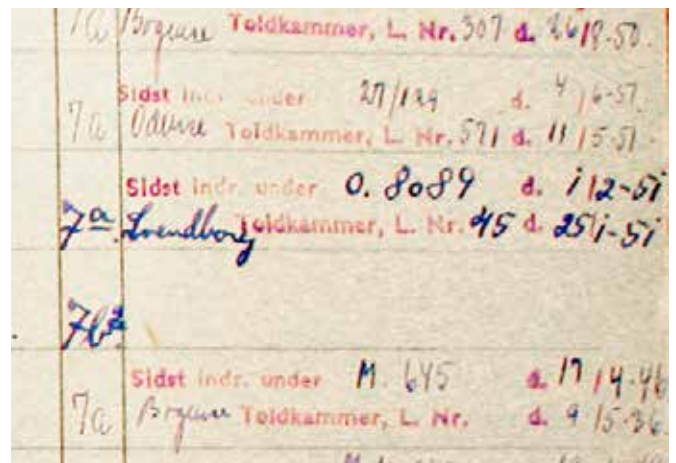 7a Bogense Toldkammer, L. Nr. 307 d. 26/8-50.
Sidst indr. under 27/129 d. 4/6-51.
7a Odense Toldkammer, L. Nr. 571 d. 11/5-51.
Sidst indr. under O. 8089 d. 1/2-51
7a. Svendborg Toldkammer, L. Nr. 45 d. 25/1-51
7b
Sidst indr. under M. 645 d. 17/4-46
7a Bogense Toldkammer, L. Nr. d. 9/5-36.